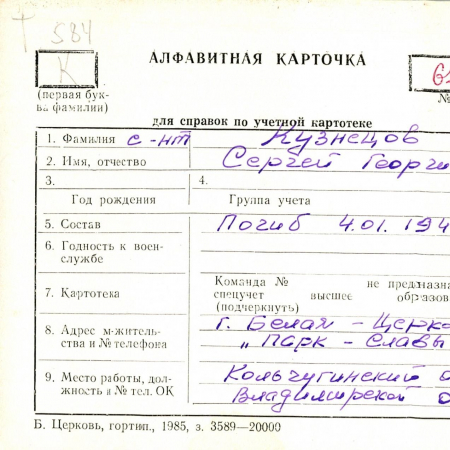 584
АЛФАВИТНАЯ КАРТОЧКА
К
(первая бук-
ва фамилии)
№
для справок по учетной картотеке
1. Фамилия с-нт Кузнецов
2. Имя, отчество Сергей Георги
3. 4.
Год рождения Группа учета
5. Состав Погиб 4.01.194
6. Годность к воен-
службе
Команда № не предназна
7. Картотека спецучет высшее образов
(подчеркнуть)
8. Адрес м-житель-
ства и № телефона
г. Белая - Церко
„ Парк - Славы
9. Место работы, дол-
жность и № тел. ОК
Кольчугинский
Владимирской о
Б. Церковь, гортип., 1985, з. 3589—20000